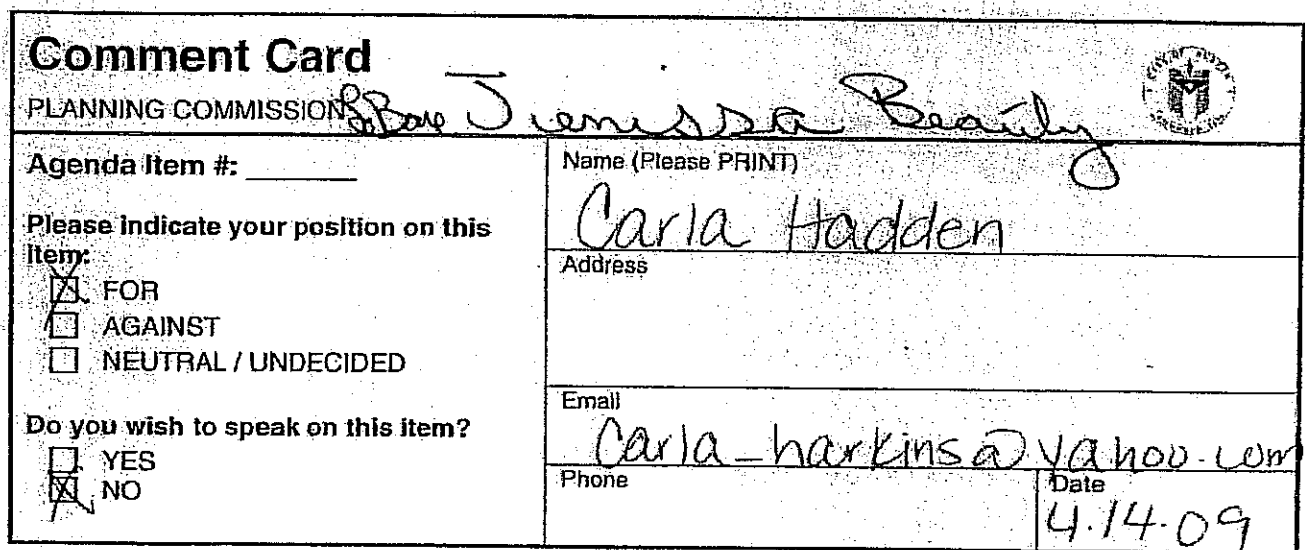 Comment Card
PLANNING COMMISSION Beauty
Agenda Item #:
Please indicate your position on this
item:
FOR
AGAINST
NEUTRAL / UNDECIDED
Do you wish to speak on this item?
YES
NO
Name (Please PRINT)
Carla Hadden
Address
Email
Carla_harkins@yahoo.com
Phone
Date
4.14.09